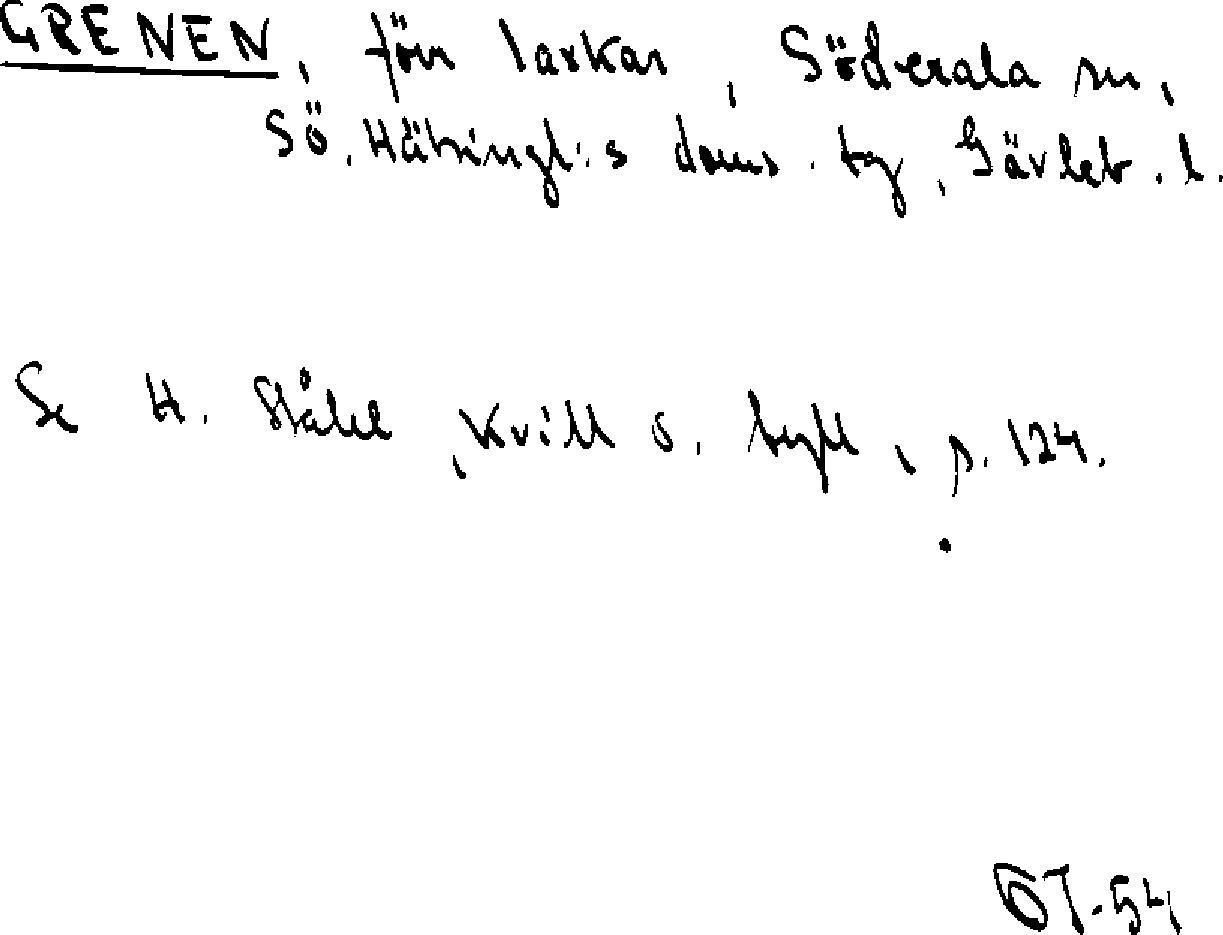 GRENEN, förr laxkar, Söderala sn,
Sö. Hälsingl:s doms. tg, Gävleb. l.
Se H. Ståhl, Kvill o. byll, p. 124.
ÖT-54